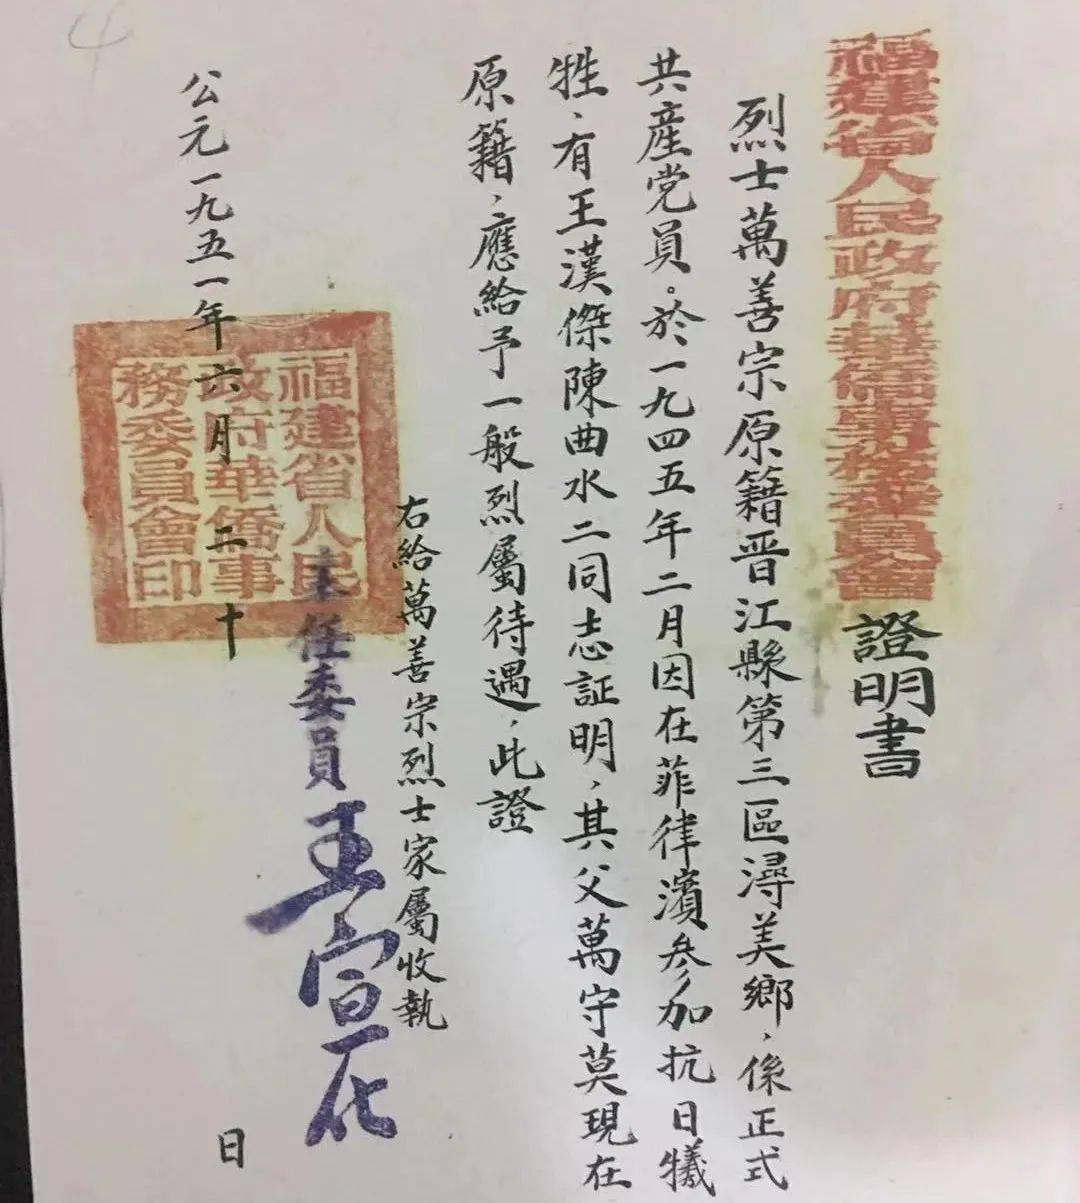 福建省人民政府華僑事務委員會證明書
烈士萬善宗原籍晋江縣第三區潯美鄉，係正式
共産党員。於一九四五年二月因在菲律濱參加抗日犧
牲，有王漢傑陳曲水二同志証明，其父萬守莫現在
原籍，應給予一般烈屬待遇，此證
右給萬善宗烈士家屬收執
主任委員王宣化
福建省人民
政府華僑事
務委員會印
公元一九五一年六月二十日
4